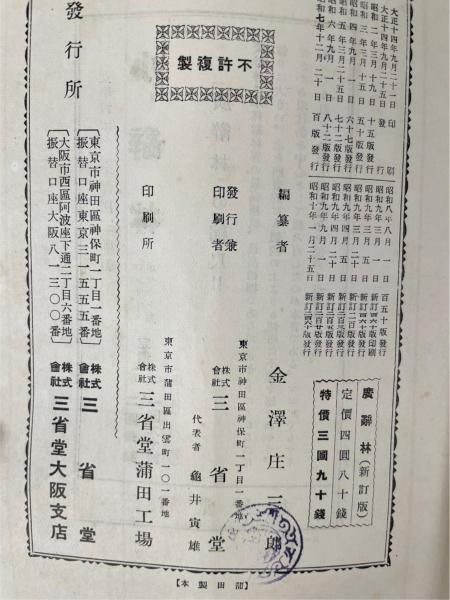 大正十四年九月二十一日印刷
大正十四年九月二十五日發行
昭和二年三月十九日十五版發行
昭和三年三月十五日五十版發行
昭和四年九月一日六十七版發行
昭和五年三月二十五日七十二版發行
昭和六年九月一日八十二版發行
昭和七年十二月二十日百版發行
昭和八年八月一日百五十版發行
昭和九年三月一日新訂百六十版印刷
昭和九年三月五日新訂百六十版發行
昭和九年三月二十日新訂二百版發行
昭和九年四月五日
昭和九年四月二十日
昭和九年九月
昭和十年一月二十五日
廣辭林(新訂版)
定價四圓八十錢
特價三圓九十錢
不許復製
編纂者 金澤庄三郎
東京市神田區神保町一丁目一番地
發行兼印刷者 株式會社 三省堂
代表者 龜井寅雄
東京市蒲田區出雲町一〇一番地
印刷所 株式會社 三省堂蒲田工場
發行所
東京市神田區神保町一丁目一番地
振替口座東京三一五五五番
株式會社 三省堂
大阪市西區阿波座下通二丁目六番地
振替口座大阪八一三〇〇番
株式會社 三省堂大阪支店
【蒲田製本】